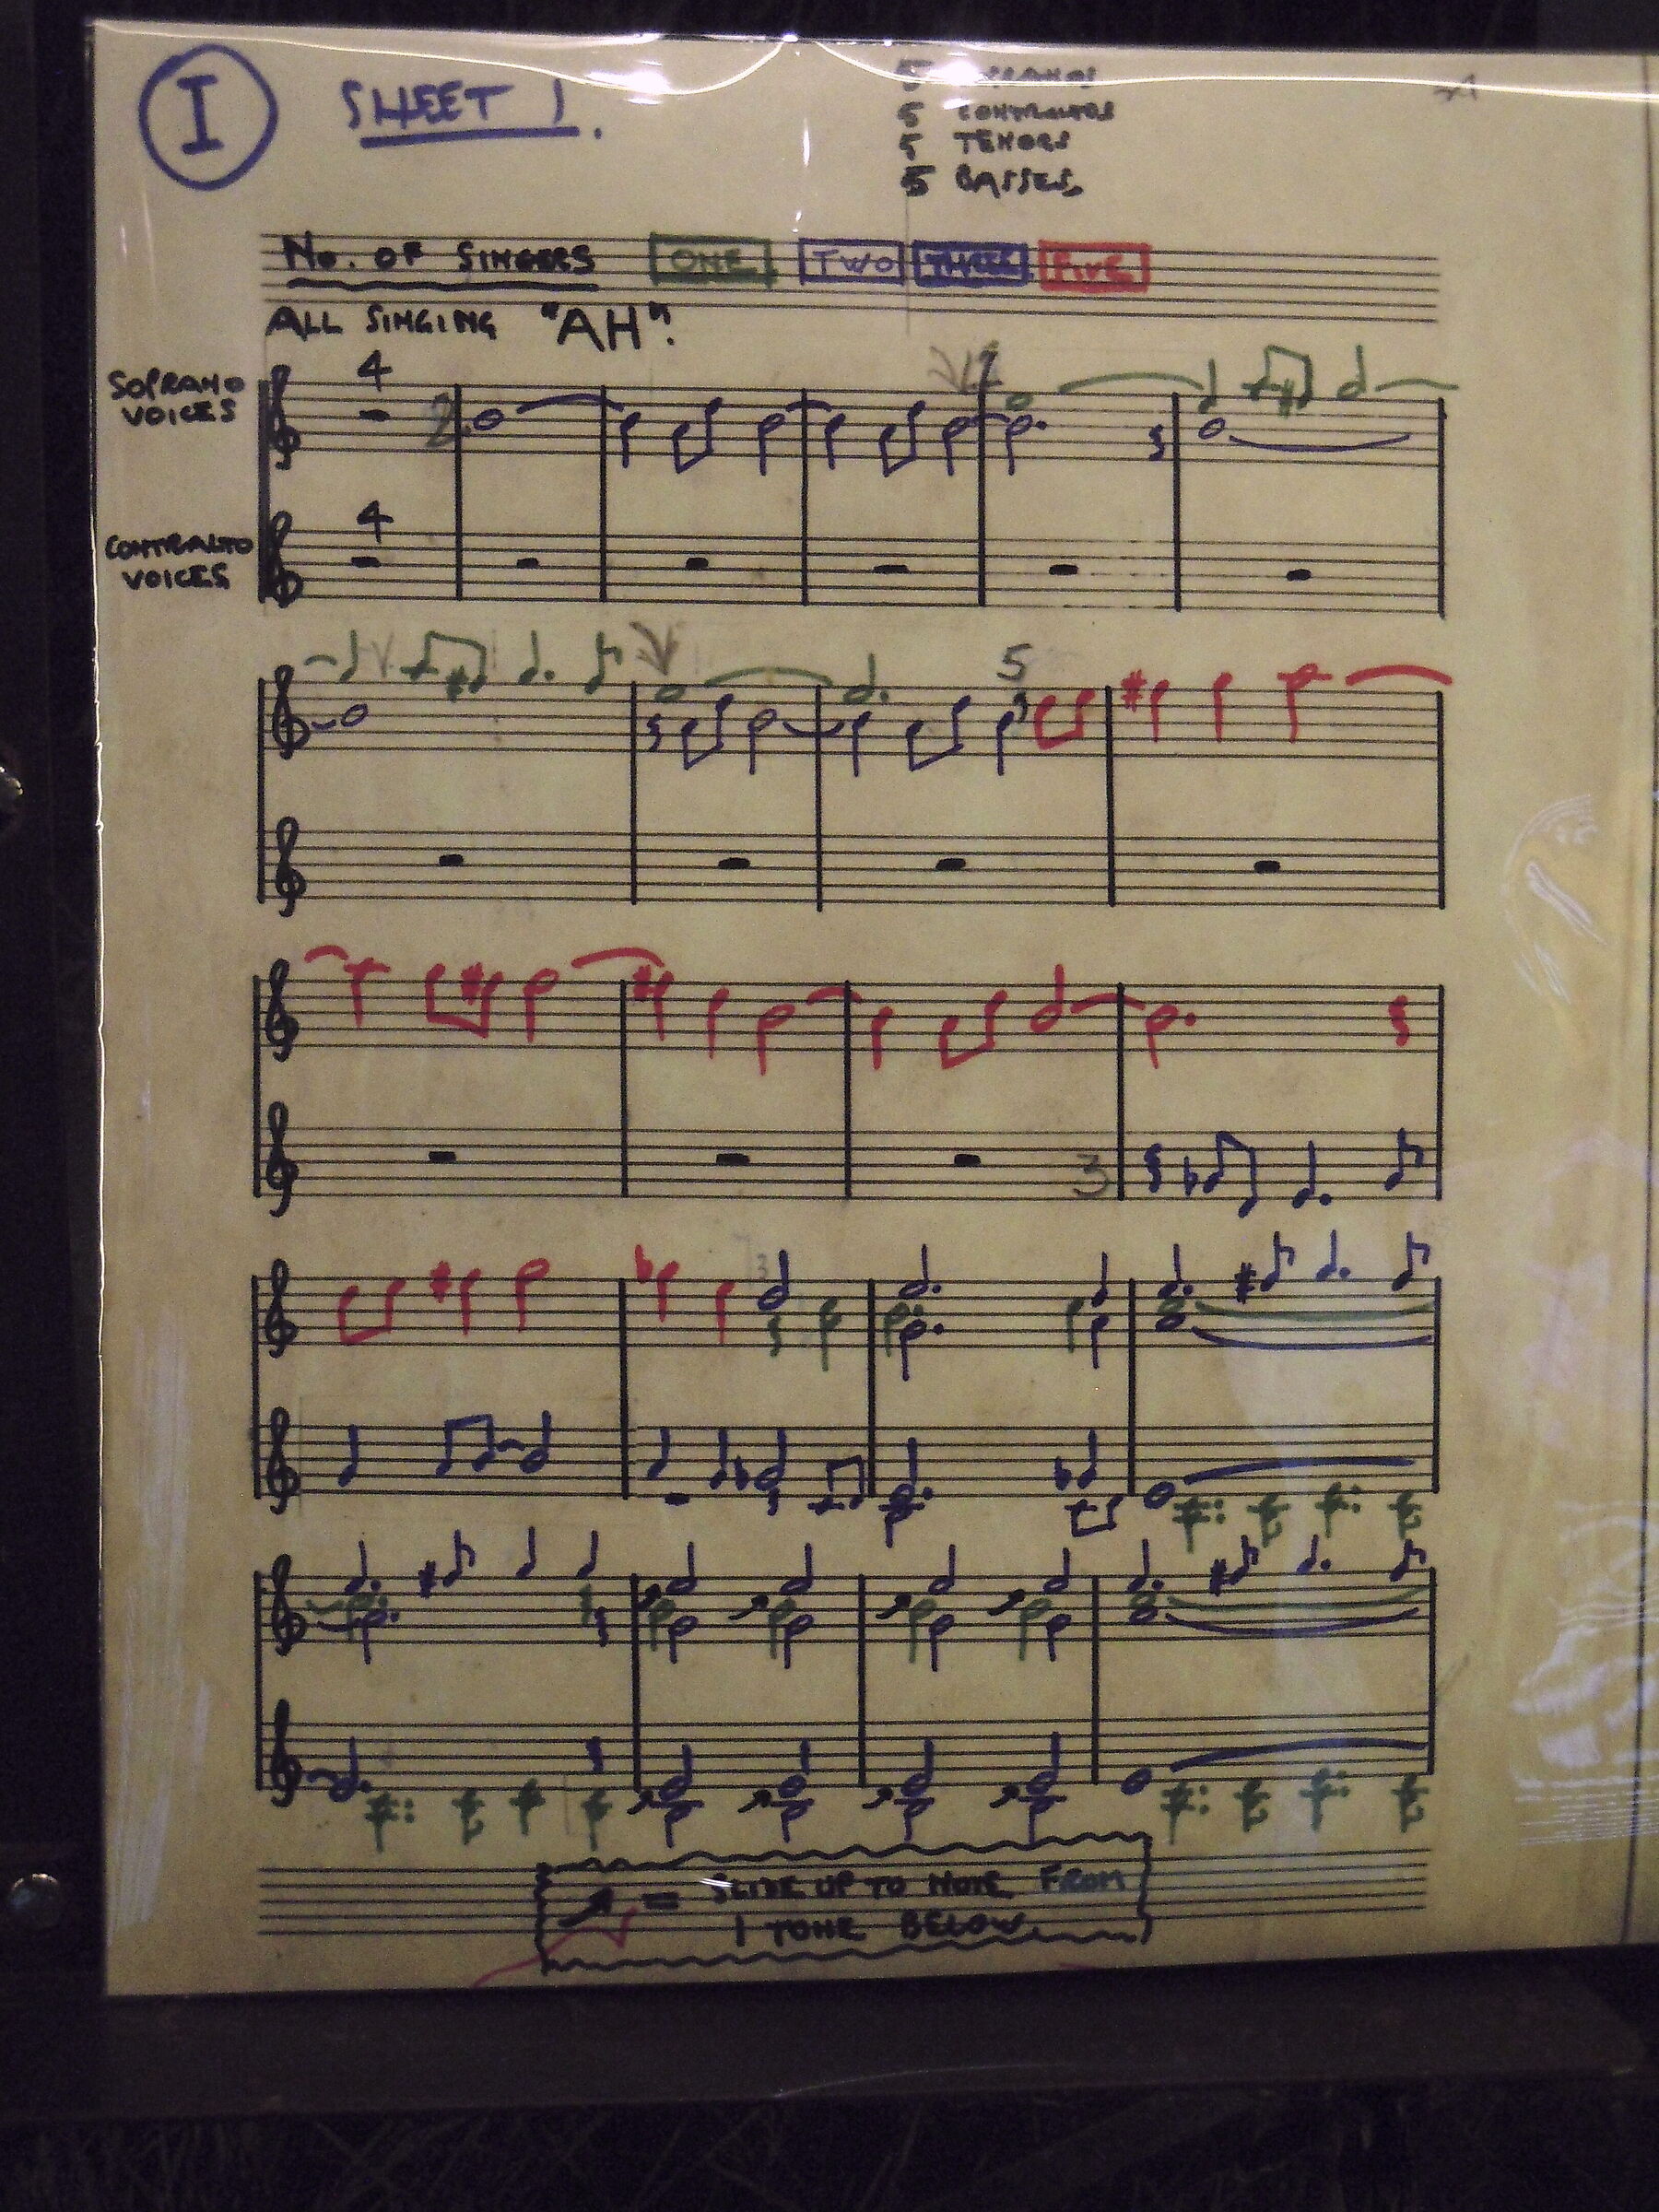 I SHEET 1.
5
5 CONTRALTOS
5 TENORS
5 BASSES
No. OF SINGERS ONE TWO THREE FIVE
ALL SINGING "AH".
SOPRANO VOICES
4
2
CONTRALTO VOICES
4
5
3
3
= SLIDE UP TO NOTE FROM
1 TONE BELOW